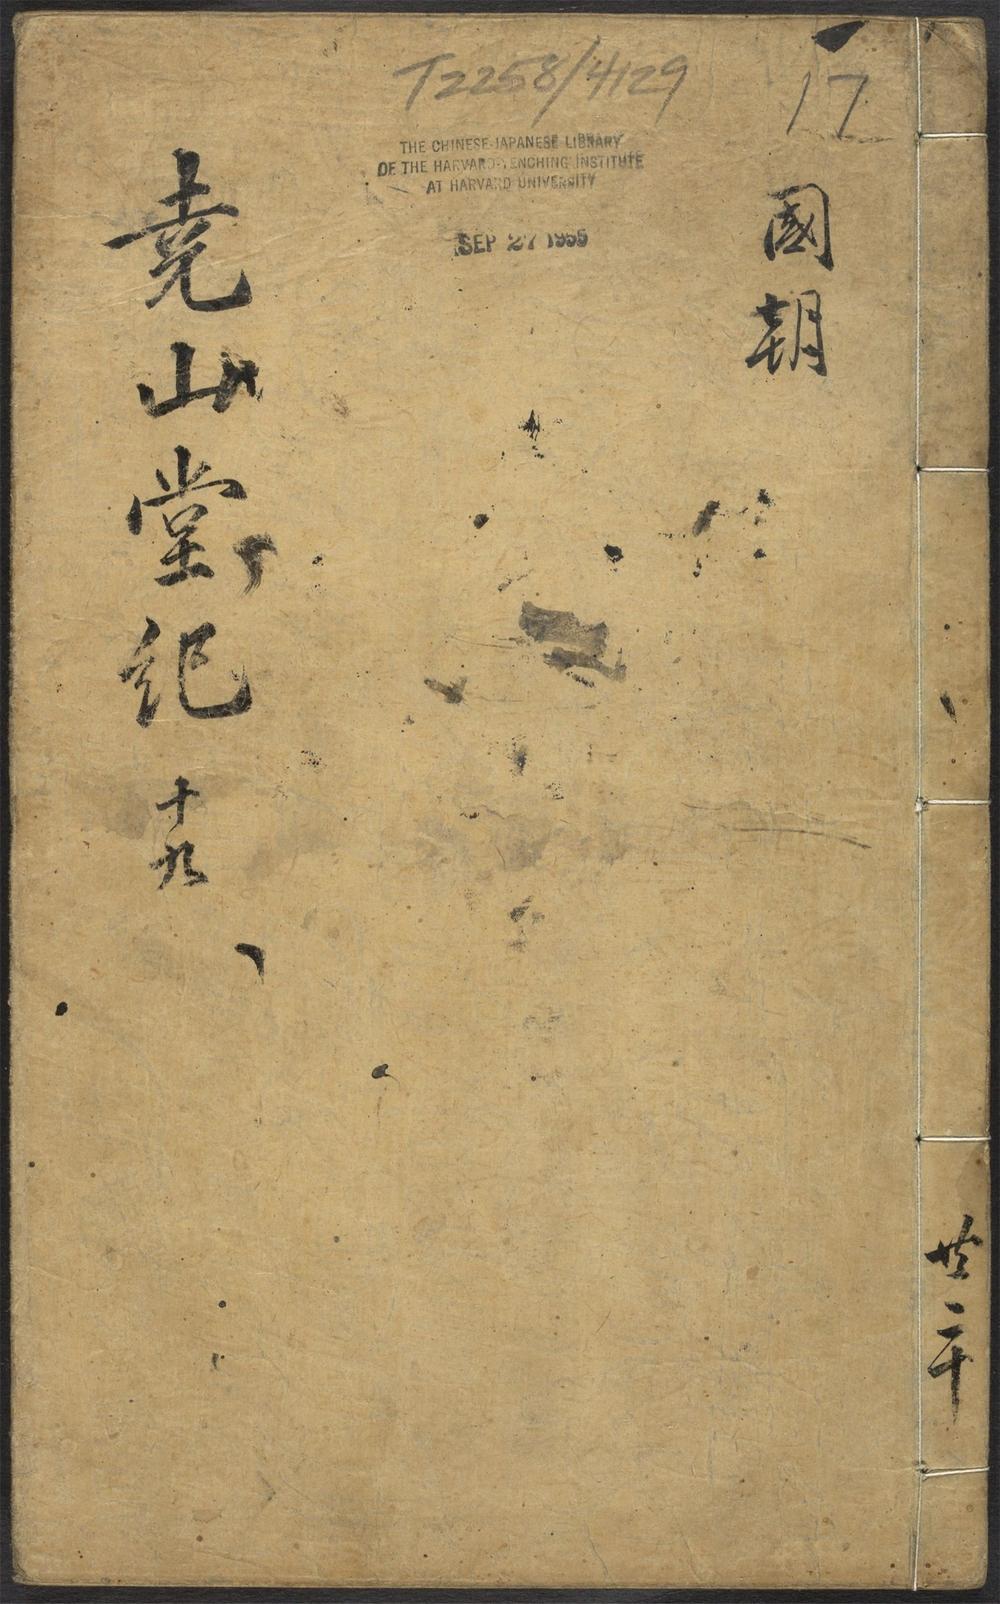 T2258/4129
17
THE CHINESE-JAPANESE LIBRARY
OF THE HARVARD-YENCHING INSTITUTE
AT HARVARD UNIVERSITY
SEP 27 1955
國朝
堯山堂紀 十九